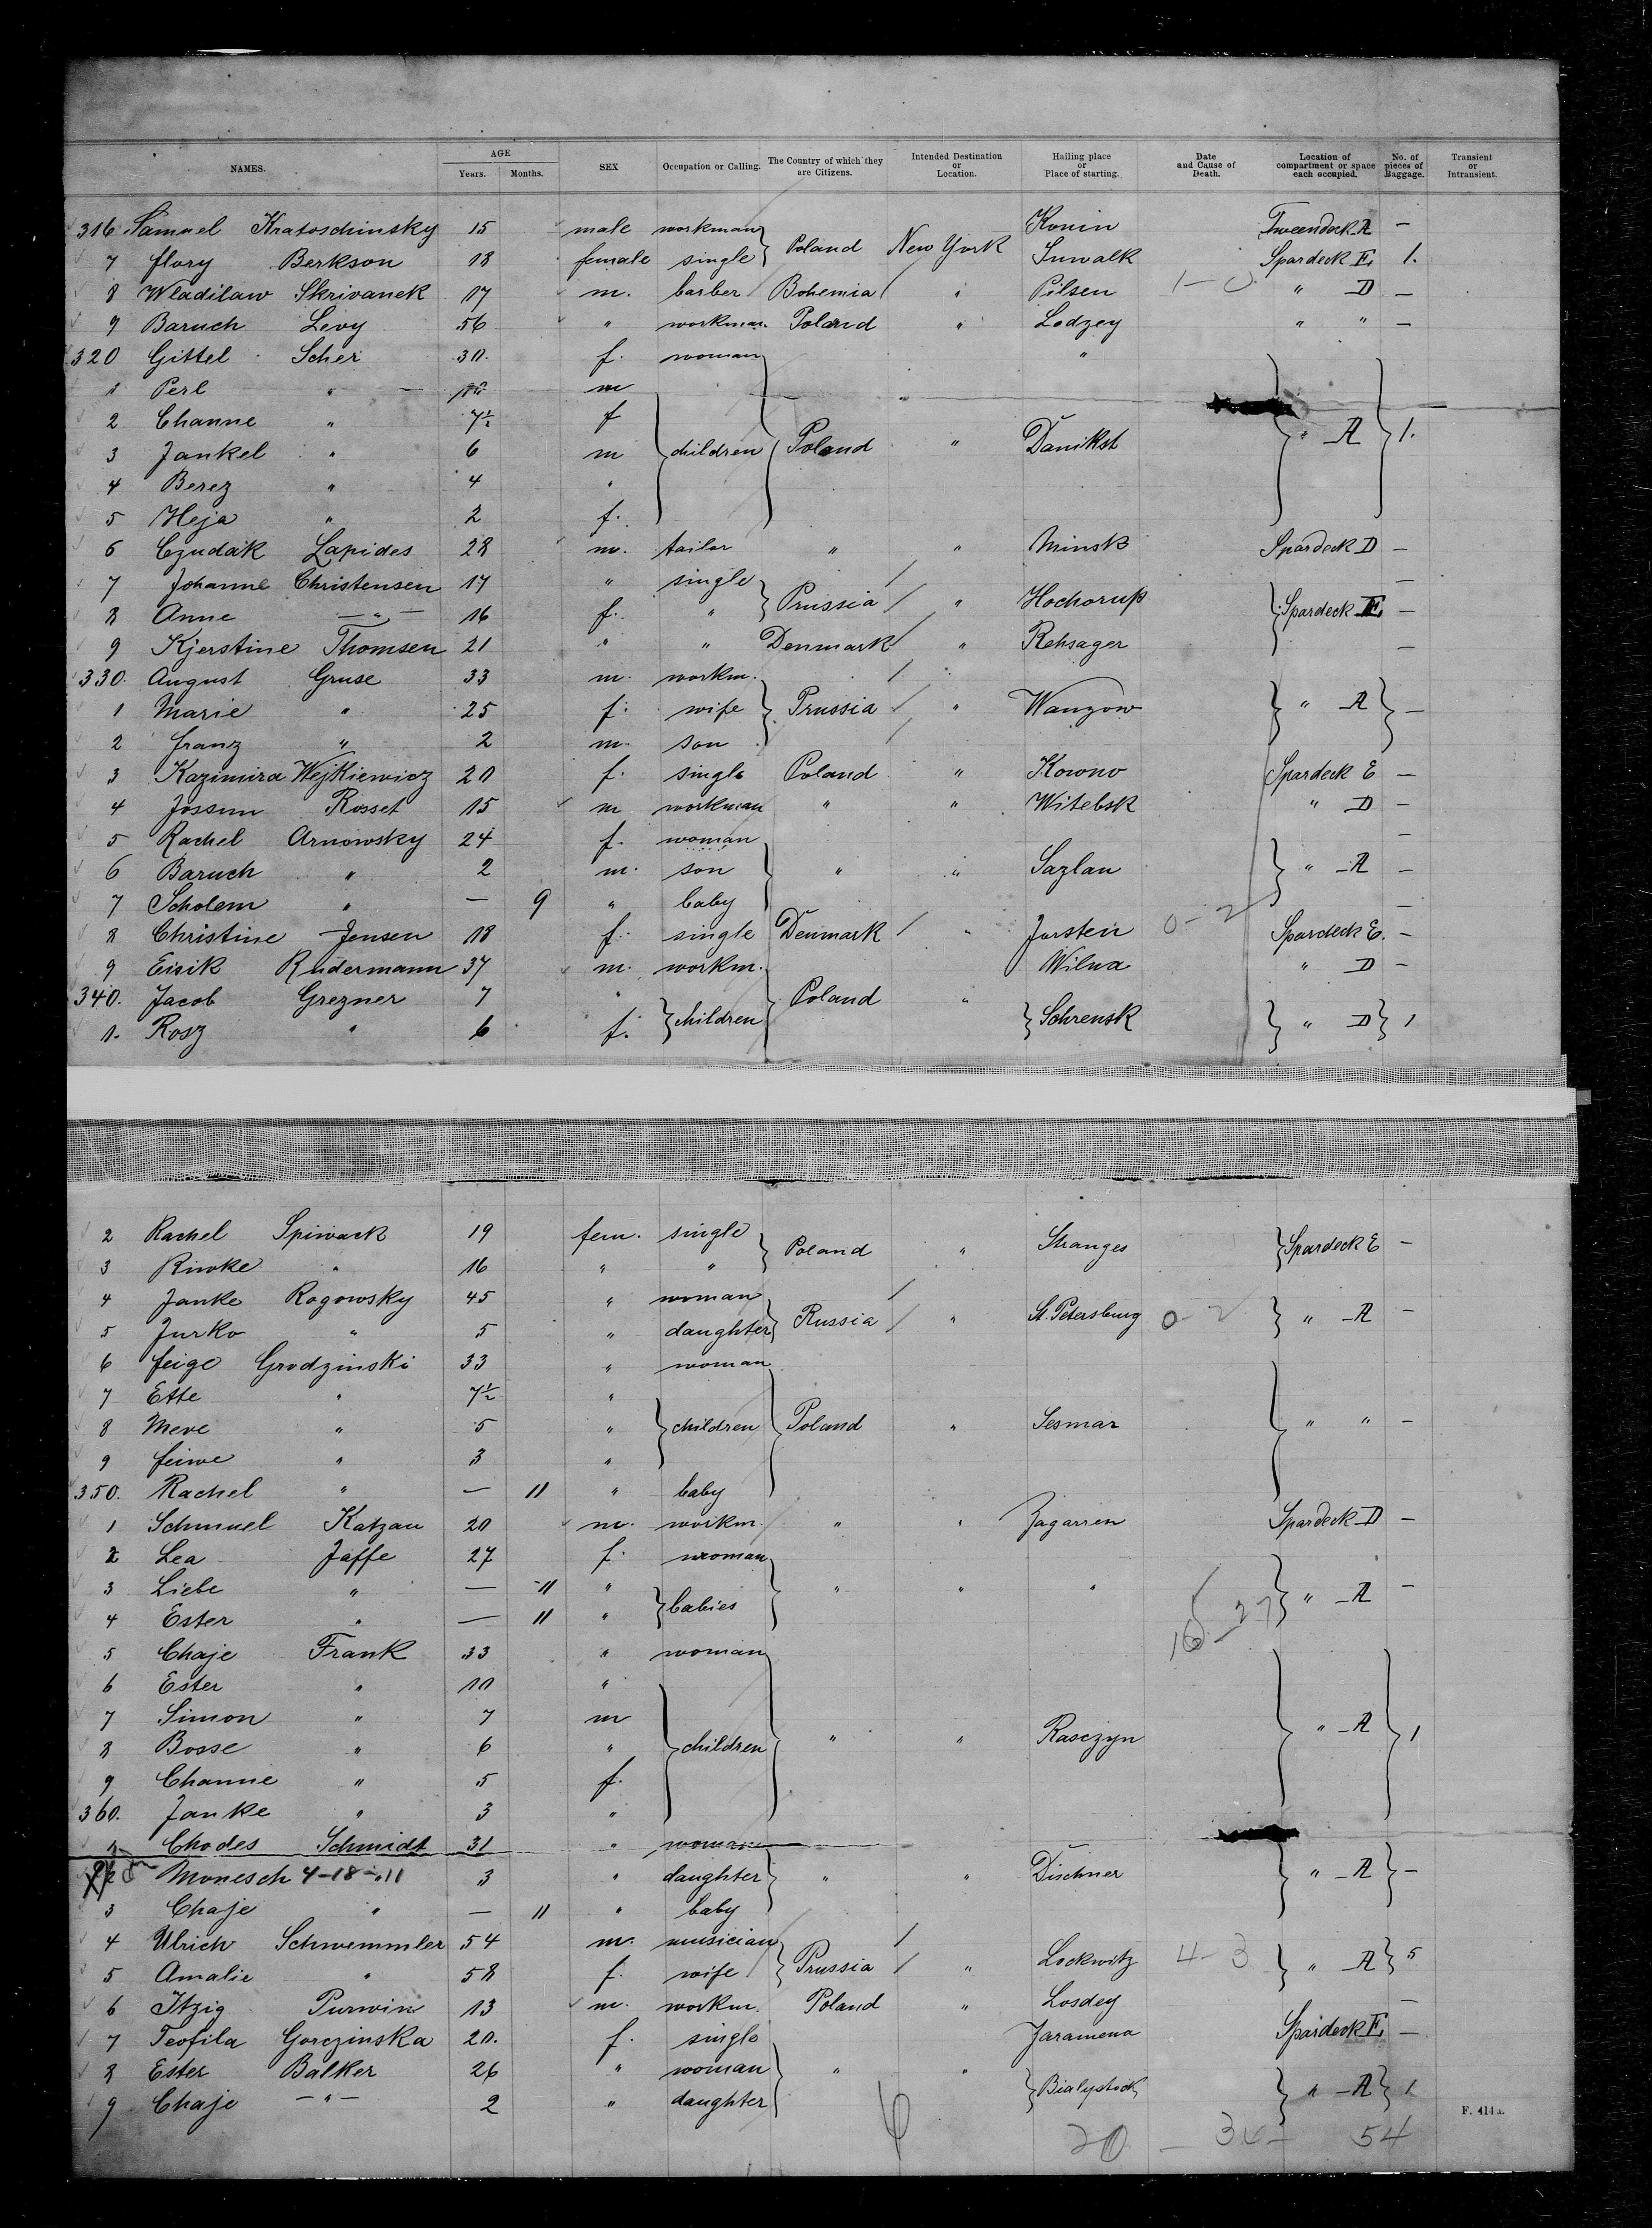 NAMES. AGE Years. Months. SEX Occupation or Calling. The Country of which they are Citizens. Intended Destination or Location. Hailing place or Place of starting. Date and Cause of Death. Location of compartment or space each occupied. No. of pieces of Baggage. Transient or Intransient.
316 Samuel Kratoschinsky 15 male workman } Poland New York Konin Tweendeck A —
7 flory Berkson 18 female single Suwalk Spardeck E 1.
8 Wladilaw Skrivanek 17 m. barber Bohemia " Pilsen " D —
9 Baruch Levy 56 " workman. Poland " Lodzey " " —
320 Gittel Scher 30. f. woman "
1 Perl " m
2 Channe " 7½ f
3 Jankel " 6 m } children } Poland " Danikst } " A } 1.
4 Berez " 4 "
5 Heja " 2 f.
6 Czudak Lapides 28 m. tailor " " Minsk Spardeck D —
7 Johanne Christensen 17 " single / —
8 Anne — " — 16 f. " } Prussia / " Hochorup } Spardeck E —
9 Kjerstine Thomsen 21 " " Denmark / " Rehsager —
330. August Gruse 33 m. workm. /
1 Marie " 25 f. wife } Prussia / " Wanzow } " A } —
2 franz " 2 m. son /
3 Kazimira Wejkiewicz 20 f. single Poland " Kowno Spardeck E —
4 Jossum Rosset 15 m workman " " Witebsk " D —
5 Rachel Arnowsky 24 f. woman —
6 Baruch " 2 m. son } " " Sazlan } " A —
7 Scholem " — 9 " baby —
8 Christine Jensen 18 f. single Denmark / " Jarstein 0-2 Spardeck E. —
9 Eisik Rudermann 37 m. workm. Wilna " D —
340. Jacob Grezner 7 " } Poland "
1. Rosz " 6 f. } children } Schrensk } " D } 1
2 Rachel Spiwack 19 fem. single } Poland " Stranges } Spardeck E —
3 Riwke " 16 " "
4 Janke Rogowsky 45 " woman /
5 Jurko " 5 " daughter } Russia / " St. Petersburg 0-2 } " A —
6 feige Grodzinski 33 " woman
7 Ette " 7½ "
8 Mere " 5 " } children } Poland " Sesmar } " " —
9 feiwe " 3 "
350. Rachel " — 11 " baby
1 Schmuel Katzau 20 m. workm. " " Zagarren Spardeck D —
2 Lea Jaffe 27 f. woman
3 Liebe " — 11 " } babies } " " " } " A —
4 Ester " — 11 "
5 Chaje Frank 33 " woman
6 Ester " 10 "
7 Simon " 7 m
8 Bosse " 6 " } children } " " Rasczyn } " A } 1
9 Channe " 5 f.
360. Janke " 3 "
1 Chodes Schmidt 31 " woman
2 Monesch 4-18-11 3 " daughter } " " Dischner } " A } —
3 Chaje " — 11 " baby
4 Ulrich Schwemmler 54 m. musician /
5 Amalie " 58 f. wife } Prussia / " Lockwitz 4-3 } " A } 5
6 Itzig Purwin 13 m. workm. Poland " Losdey —
7 Teofila Gorczinska 20. f. single Jaramena Spardeck E —
8 Ester Balker 26 " woman } " "
9 Chaje — " — 2 " daughter } Bialystock } " A } 1
F. 414a.
20 — 54